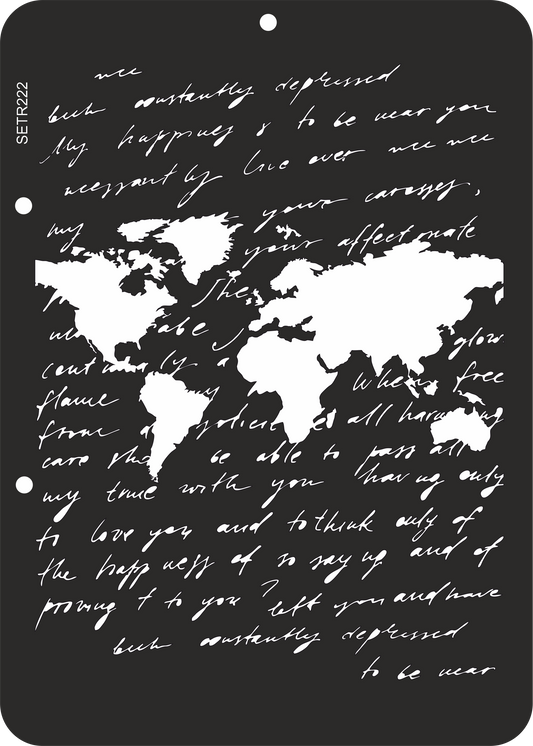 SETR222
been constantly depressed
My happiness is to be near you
incessantly live over
your caresses,
my your affectionate
The
able glow
continually a When free
flame
from solicit all harassing
care shall be able to pass all
my time with you having only
to love you and to think only of
the happiness of so saying and of
proving it to you? left you and have
been constantly depressed
to be near